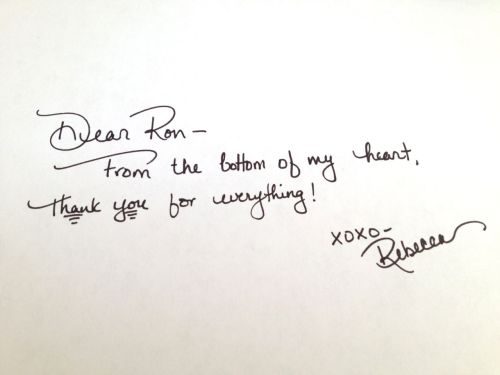 Dear Ron -
From the bottom of my heart,
Thank you for everything!
xoxo-
Rebecca